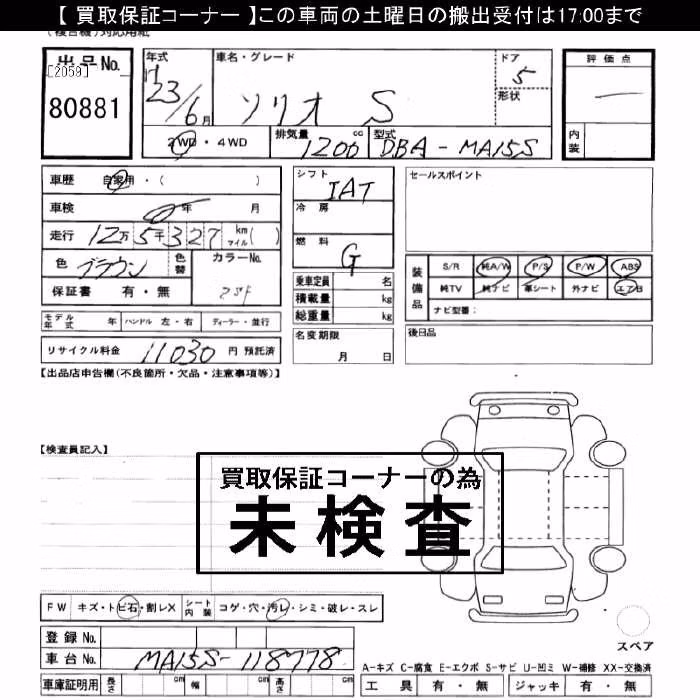 【 買取保証コーナー 】この車両の土曜日の搬出受付は17:00まで
(複合機)対応用紙
出品No.
[2059]
80881
年式
H
23/6月
車名・グレード
ソリオ S
ドア
5
形状
評価点
内装
2WD・4WD
排気量
1200
cc
型式
DBA-MA15S
車歴 自家用・( )
車検 年 月
走行 12万5千327
km
マイル( )
色 ブラウン
色替
カラーNo.
ZSF
保証書 有・無
シフト
IAT
冷房
燃料
G
セールスポイント
装備品
S/R 純A/W P/S P/W ABS
純TV 純ナビ 革シート 外ナビ エアB
ナビ型番:
乗車定員 名
積載量 kg
総重量 kg
モデル年式 年 ハンドル 左・右 ディーラー・並行
リサイクル料金 11030 円 預託済
名変期限
月 日
後日品
【出品店申告欄(不良箇所・欠品・注意事項等)】
【検査員記入】
買取保証コーナーの為
未検査
FW キズ・トビ石・割レX シート内装 コゲ・穴・汚レ・シミ・破レ・スレ
登録No.
車台No. MA15S-118778
車庫証明用 長さ cm 幅 cm 高さ cm
スペア
A-キズ C-腐食 E-エクボ S-サビ U-凹ミ W-補修 XX-交換済
工具 有・無 ジャッキ 有・無